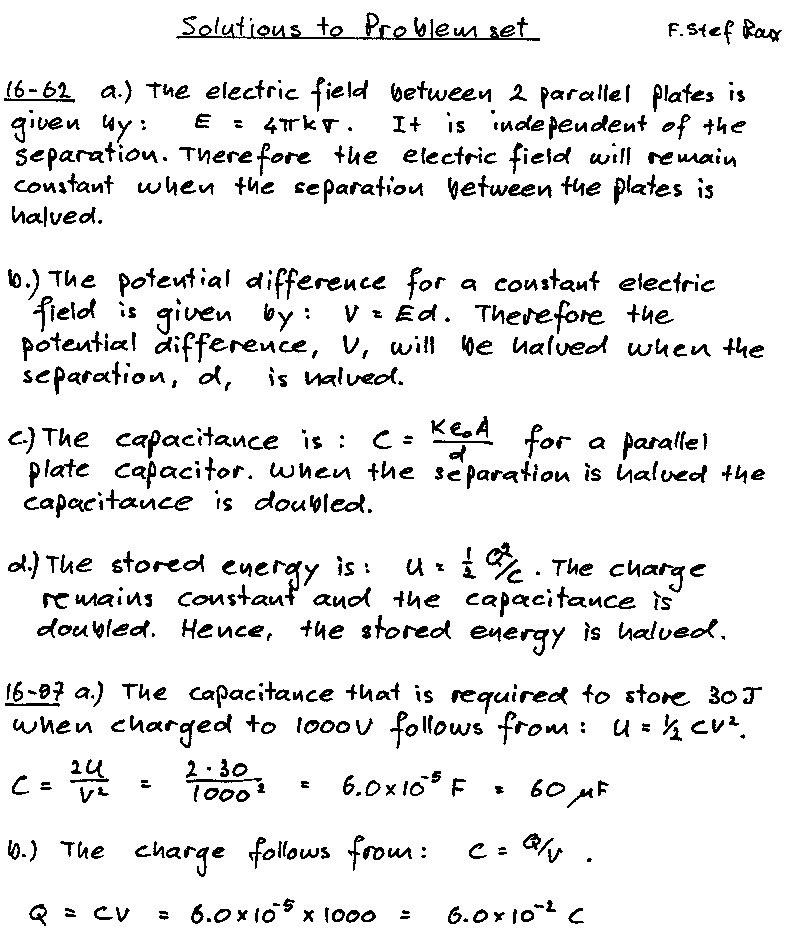 Solutions to Problem set F. Stef Rax
16-62 a.) The electric field between 2 parallel plates is
given by: E = 4πkσ. It is independent of the
separation. Therefore the electric field will remain
constant when the separation between the plates is
halved.
b.) The potential difference for a constant electric
field is given by: V = Ed. Therefore the
potential difference, V, will be halved when the
separation, d, is halved.
c.) The capacitance is: C = Kε₀A/d for a parallel
plate capacitor. When the separation is halved the
capacitance is doubled.
d.) The stored energy is: U = ½ Q²/C. The charge
remains constant and the capacitance is
doubled. Hence, the stored energy is halved.
16-87 a.) The capacitance that is required to store 30 J
when charged to 1000V follows from: U = ½ CV².
C = 2U/V² = 2·30/1000² = 6.0×10⁻⁵ F = 60 μF
b.) The charge follows from: C = Q/V.
Q = CV = 6.0×10⁻⁵ × 1000 = 6.0×10⁻² C